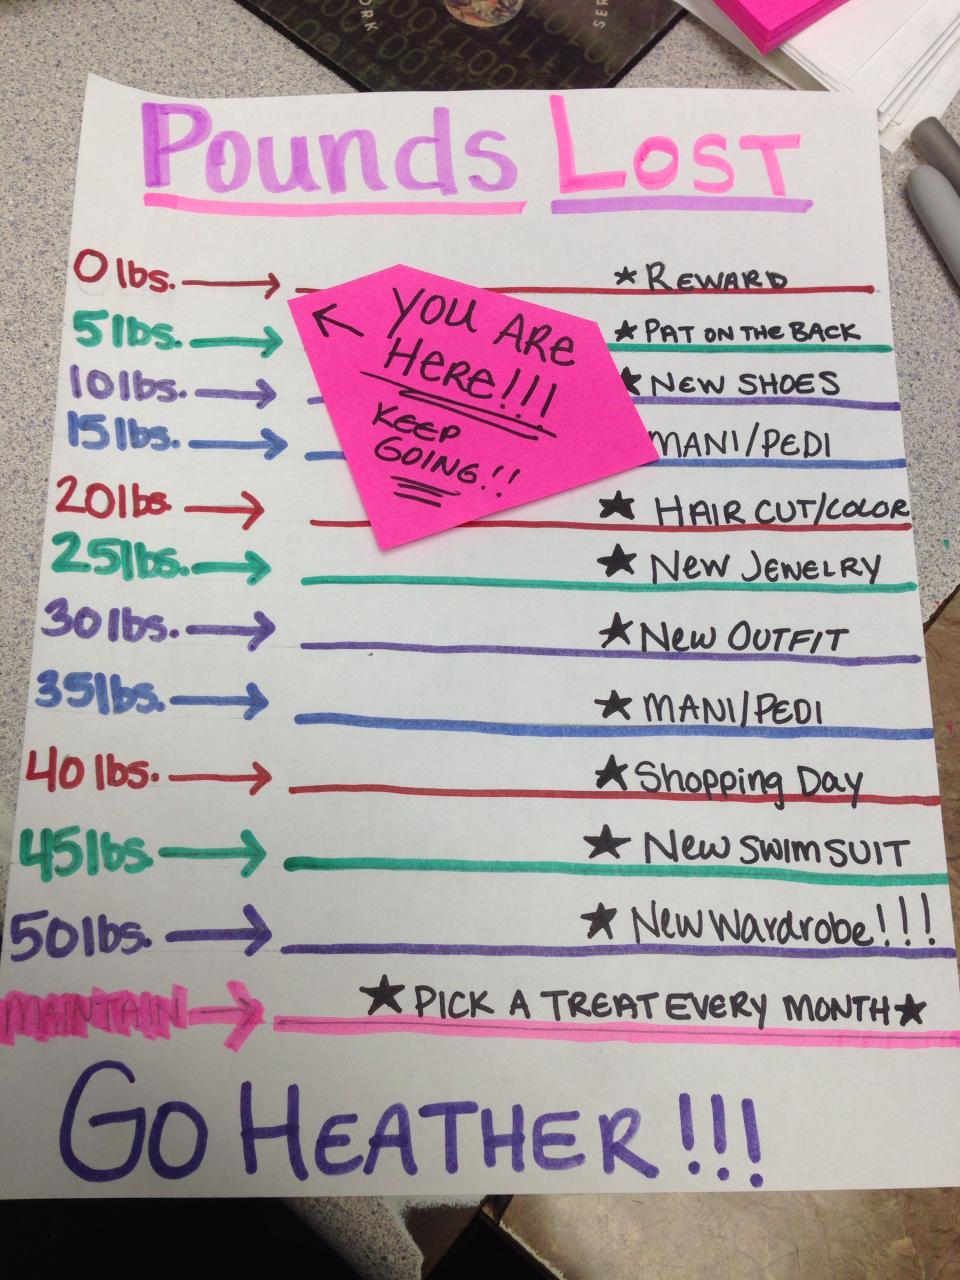 ORK
SER
Pounds Lost
0 lbs. → ★ REWARD
5 lbs. → ★ PAT ON THE BACK
10 lbs. → ★ NEW SHOES
15 lbs. → MANI/PEDI
20 lbs. → ★ HAIR CUT/COLOR
25 lbs. → ★ New JEWELRY
30 lbs. → ★ New OUTFIT
35 lbs. → ★ MANI/PEDI
40 lbs. → ★ Shopping Day
45 lbs. → ★ New SWIMSUIT
50 lbs. → ★ New Wardrobe!!!
MAINTAIN → ★ PICK A TREAT EVERY MONTH ★
GO HEATHER!!!
← YOU ARE
HERE!!!
KEEP
GOING!!